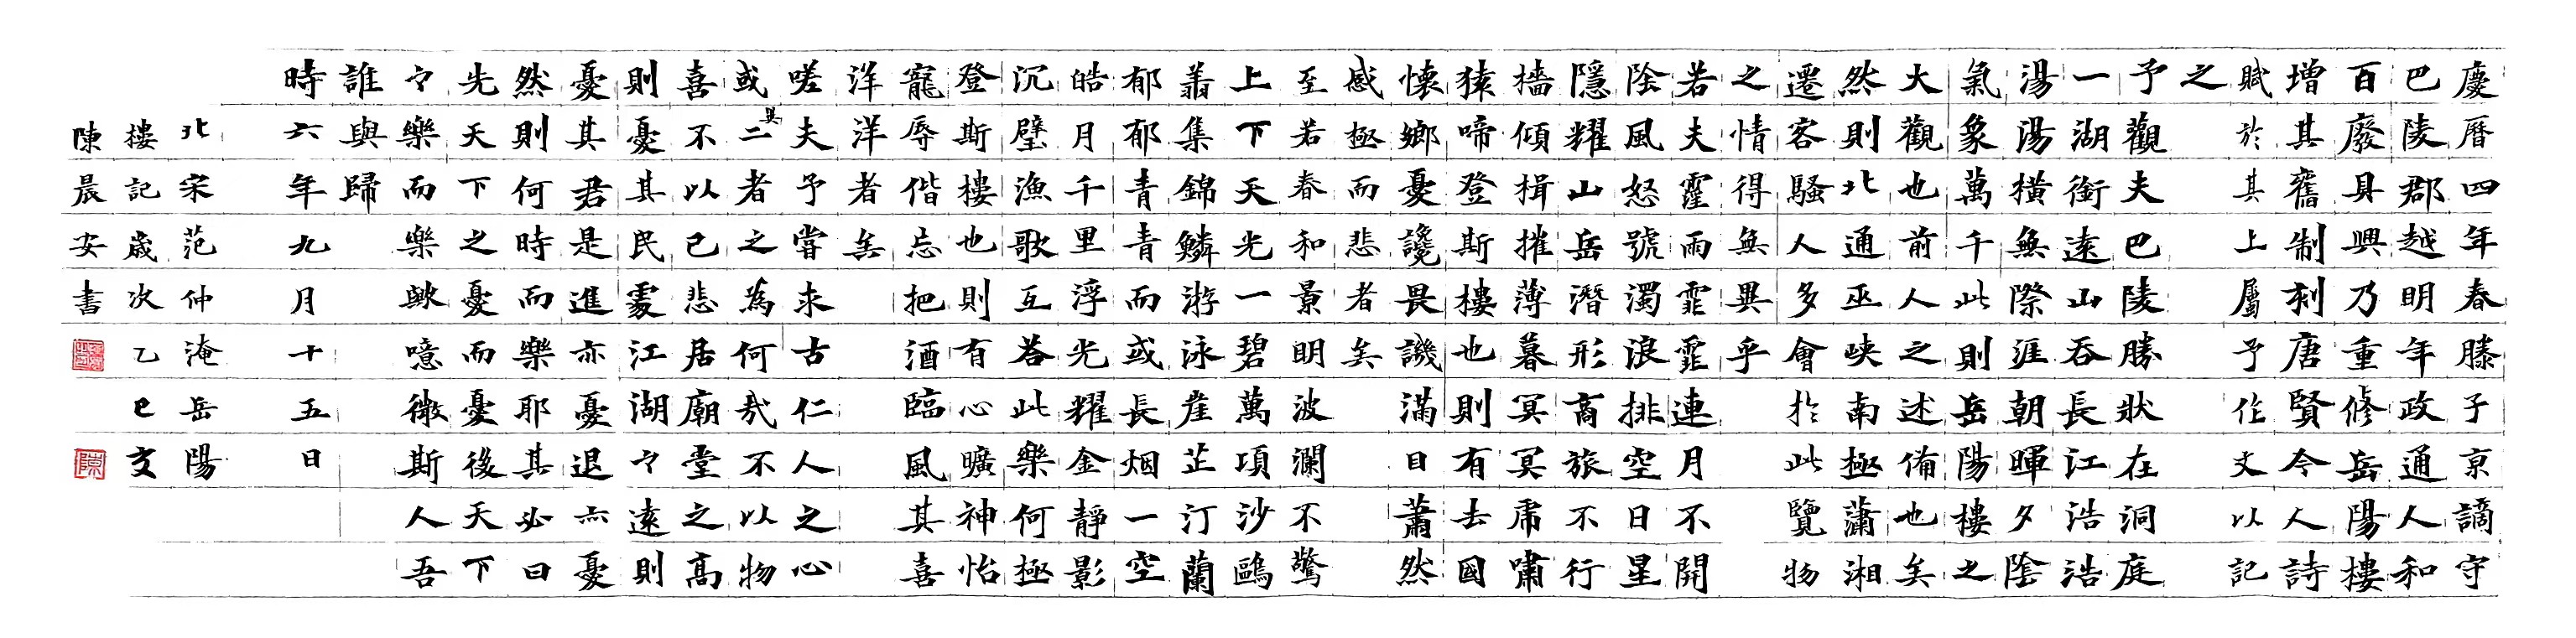 慶曆四年春滕子京謫守
巴陵郡越明年政通人和
百廢具興乃重修岳陽樓
增其舊制刻唐賢今人詩
賦於其上屬予作文以記
之
予觀夫巴陵勝狀在洞庭
一湖銜遠山吞長江浩浩
湯湯橫無際涯朝暉夕陰
氣象萬千此則岳陽樓之
大觀也前人之述俻也矣
然則北通巫峽南極瀟湘
遷客騷人多會於此覽物
之情得無異乎
若夫霪雨霏霏連月不開
陰風怒號濁浪排空日星
隱耀山岳潛形商旅不行
檣傾楫摧薄暮冥冥虎嘯
猿啼登斯樓也則有去國
懷鄉憂讒畏譏滿目蕭然
感極而悲者矣
至若春和景明波瀾不驚
上下天光一碧萬頃沙鷗
翔集錦鱗游泳岸芷汀蘭
郁郁青青而或長烟一空
皓月千里浮光耀金靜影
沉璧漁歌互答此樂何極
登斯樓也則有心曠神怡
寵辱偕忘把酒臨風其喜
洋洋者矣
嗟夫予嘗求古仁人之心
或異二者之為何哉不以物
喜不以己悲居廟堂之高
則憂其民處江湖々遠則
憂其君是進亦憂退亦憂
然則何時而樂耶其必曰
先天下之憂而憂後天下
々樂而樂歟噫微斯人吾
誰與歸
時六年九月十五日
北宋范仲淹岳陽
樓記歲次乙巳文
陳晨安書